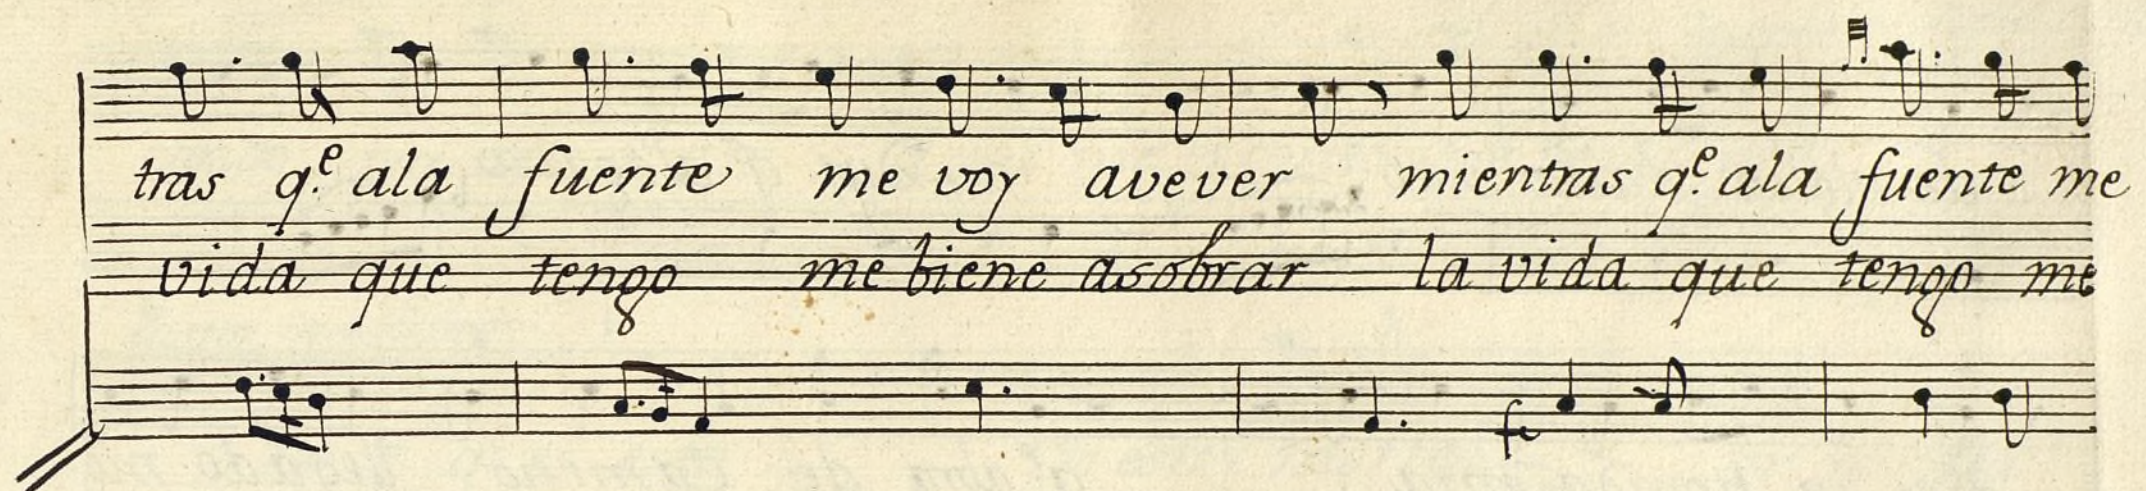 tras q.e ala fuente me voy avever mientras q.e ala fuente me
vida que tengo me biene asobrar la vida que tengo me
f